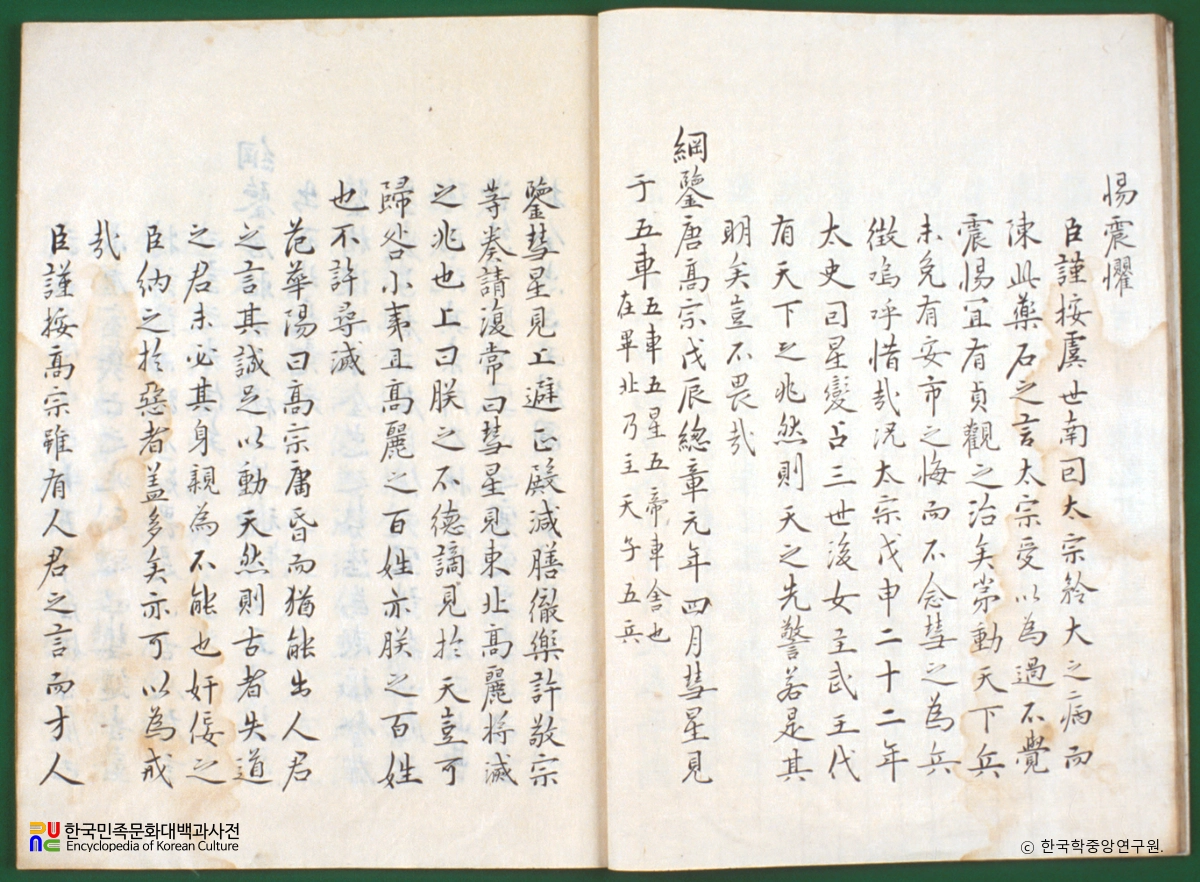 惕震懼
臣謹按虞世南曰太宗矜大之病而
陳此藥石之言太宗受以為過不覺
震惕宜有貞觀之治矣第動天下兵
未免有安市之悔而不念彗之為兵
徵嗚呼惜哉況太宗戊申二十二年
太史曰星變占三世後女主武王代
有天下之兆然則天之先警若是其
明矣豈不畏哉
綱鑒唐高宗戊辰總章元年四月彗星見
于五車五車五星五帝車舍也
在畢北乃主天子五兵
鑒彗星見上避正殿減膳徹樂許敬宗
等奏請復常曰彗星見東北高麗將滅
之兆也上曰朕之不德謫見於天豈可
歸咎小夷且高麗之百姓亦朕之百姓
也不許尋滅
范華陽曰高宗庸昏而猶能出人君
之言其誠足以動天然則古者失道
之君未必其身親為不能也奸佞之
臣納之於惡者盖多矣亦可以為戒
哉
臣謹按高宗雖有人君之言而才人
한국민족문화대백과사전
Encyclopedia of Korean Culture
ⓒ 한국학중앙연구원.